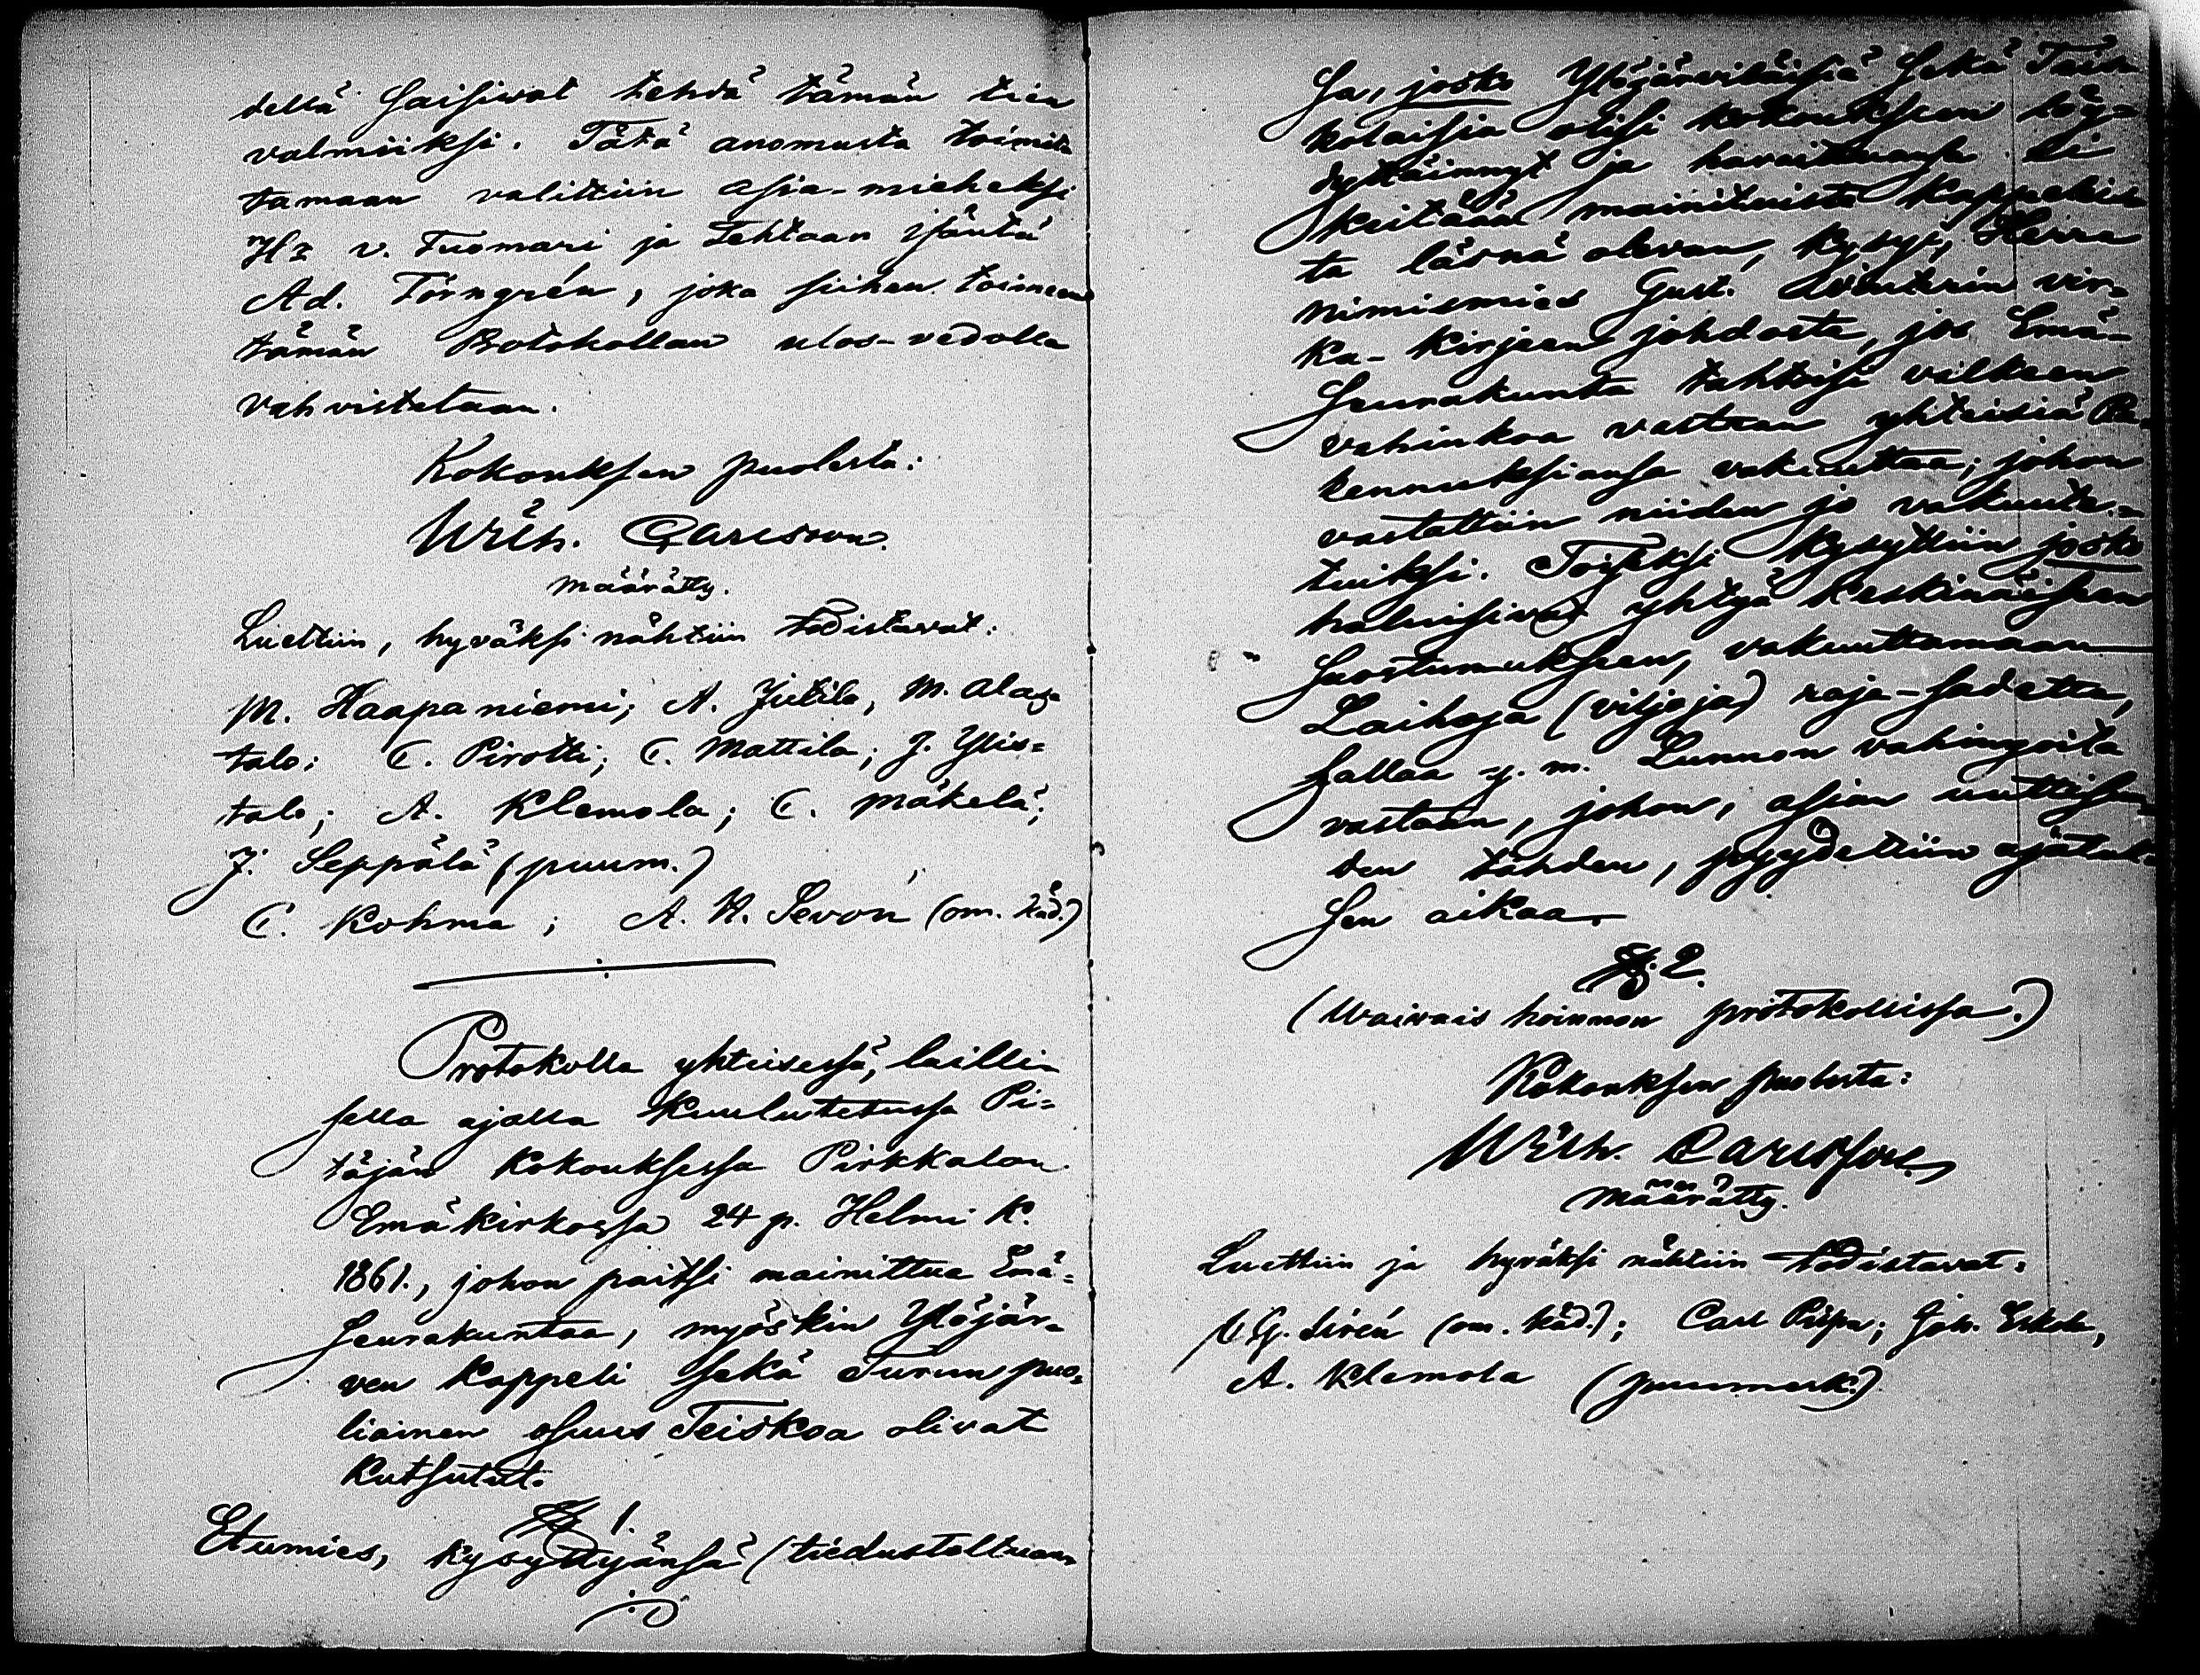 dellä saisivat tehdä tämän tien
valmiiksi. Tätä anomusta toimit
tamaan valittiin asia-mieheksi
Hr v. Tuomari ja Tehtaan isäntä
Ad. Törngrén, joka siihen toimeen
tämän Protokollan ulos-vedolla
vahvistetaan.
Kokouksen puolesta:
Wilh. Carlsson.
määrätty.
Luettiin, hyväksi nähtiin todistavat:
M. Haapaniemi; A. Jutila, M. Alas-
talo; C. Pirotti; C. Mattila; J. Ylis=
talo; A. Klemola; C. Mäkelä;
J. Seppälä (puum.)
C. Kohma; A. W. Sevon (om. käd.)
Protokolla yhteisessä, lailli-
sella ajalla kuulutetussa Pi=
täjän kokouksessa Pirkkalan
Emäkirkossa 24 p. Helmi K.
1861., johon paitsi mainittua Emä=
seurakuntaa, myöskin Ylöjär-
ven Kappeli sekä Turun puo-
liainen osuus Teiskoa olivat
kutsutut.
§ 1.
Etumies, kysyttyänsä (tiedusteltuan
sa, josko Ylöjärviläisiä sekä Teis
kolaisia olisi kokoukseen löy-
dyttäinnyt ja havaittuansa ei
keitään mainituista Kappelis
ta läsnä olevan, kysyi, Herra
nimismies Gust. Winterin vir-
ka-kirjeen johdosta, jos Emä-
seurakunta tahtoisi valkean
vahinkoa vastaan yhteisiä Ra-
kennuksiansa vakuuttaa; johon
vastattiin niiden jo vakuute-
tuiksi. Toiseksi kysyttiin josko
haluisivat yhtyä keskinäiseen
suostumukseen, vakuuttamaan
Laihoja (viljoja) raje-sadetta,
hallaa y. m. Lunnon vahingoita
vastaan, johon, asian uuttisuu
den tähden, pyydettiin ajatuk-
sen aikaa.
§. 2.
(Waivais hoinnon protokollissa.)
Kokouksen puolesta:
Wilh. Carlsson,
määrätty.
Luettiin ja hyväksi nähtiin todistavat.
G. Sirén (om. käd.); Carl Piipu; Joh. Eskola,
A. Klemola (puumerk.)